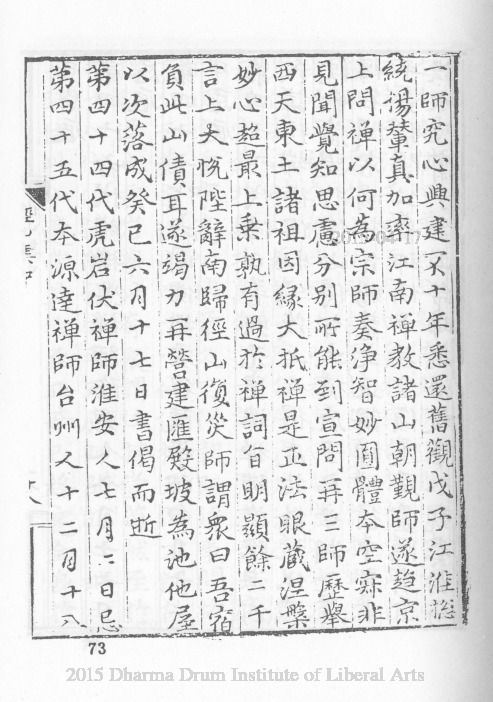 一師究心興建不十年悉還舊觀戊子江淮総
統楊輦真加率江南禅教諸山朝覲師遂趍京
上問禅以何為宗師奏浄智妙圓體本空寂非
見聞覺知思慮分别所能到宣問再三師歷舉
西天東土諸祖因緣大抵禅是正法眼藏涅槃
妙心超最上乗孰有過於禅詞旨明顯餘二千
言上大悦陛辭南歸徑山復災師謂衆曰吾宿
負此山債耳遂竭力再營建匯殿坡為池他屋
以次落成癸巳六月十七日書偈而逝
第四十四代虎岩伏禅師淮安人七月二日忌
第四十五代本源達禅師台州人十二月十八
十八
73
2015 Dharma Drum Institute of Liberal Arts